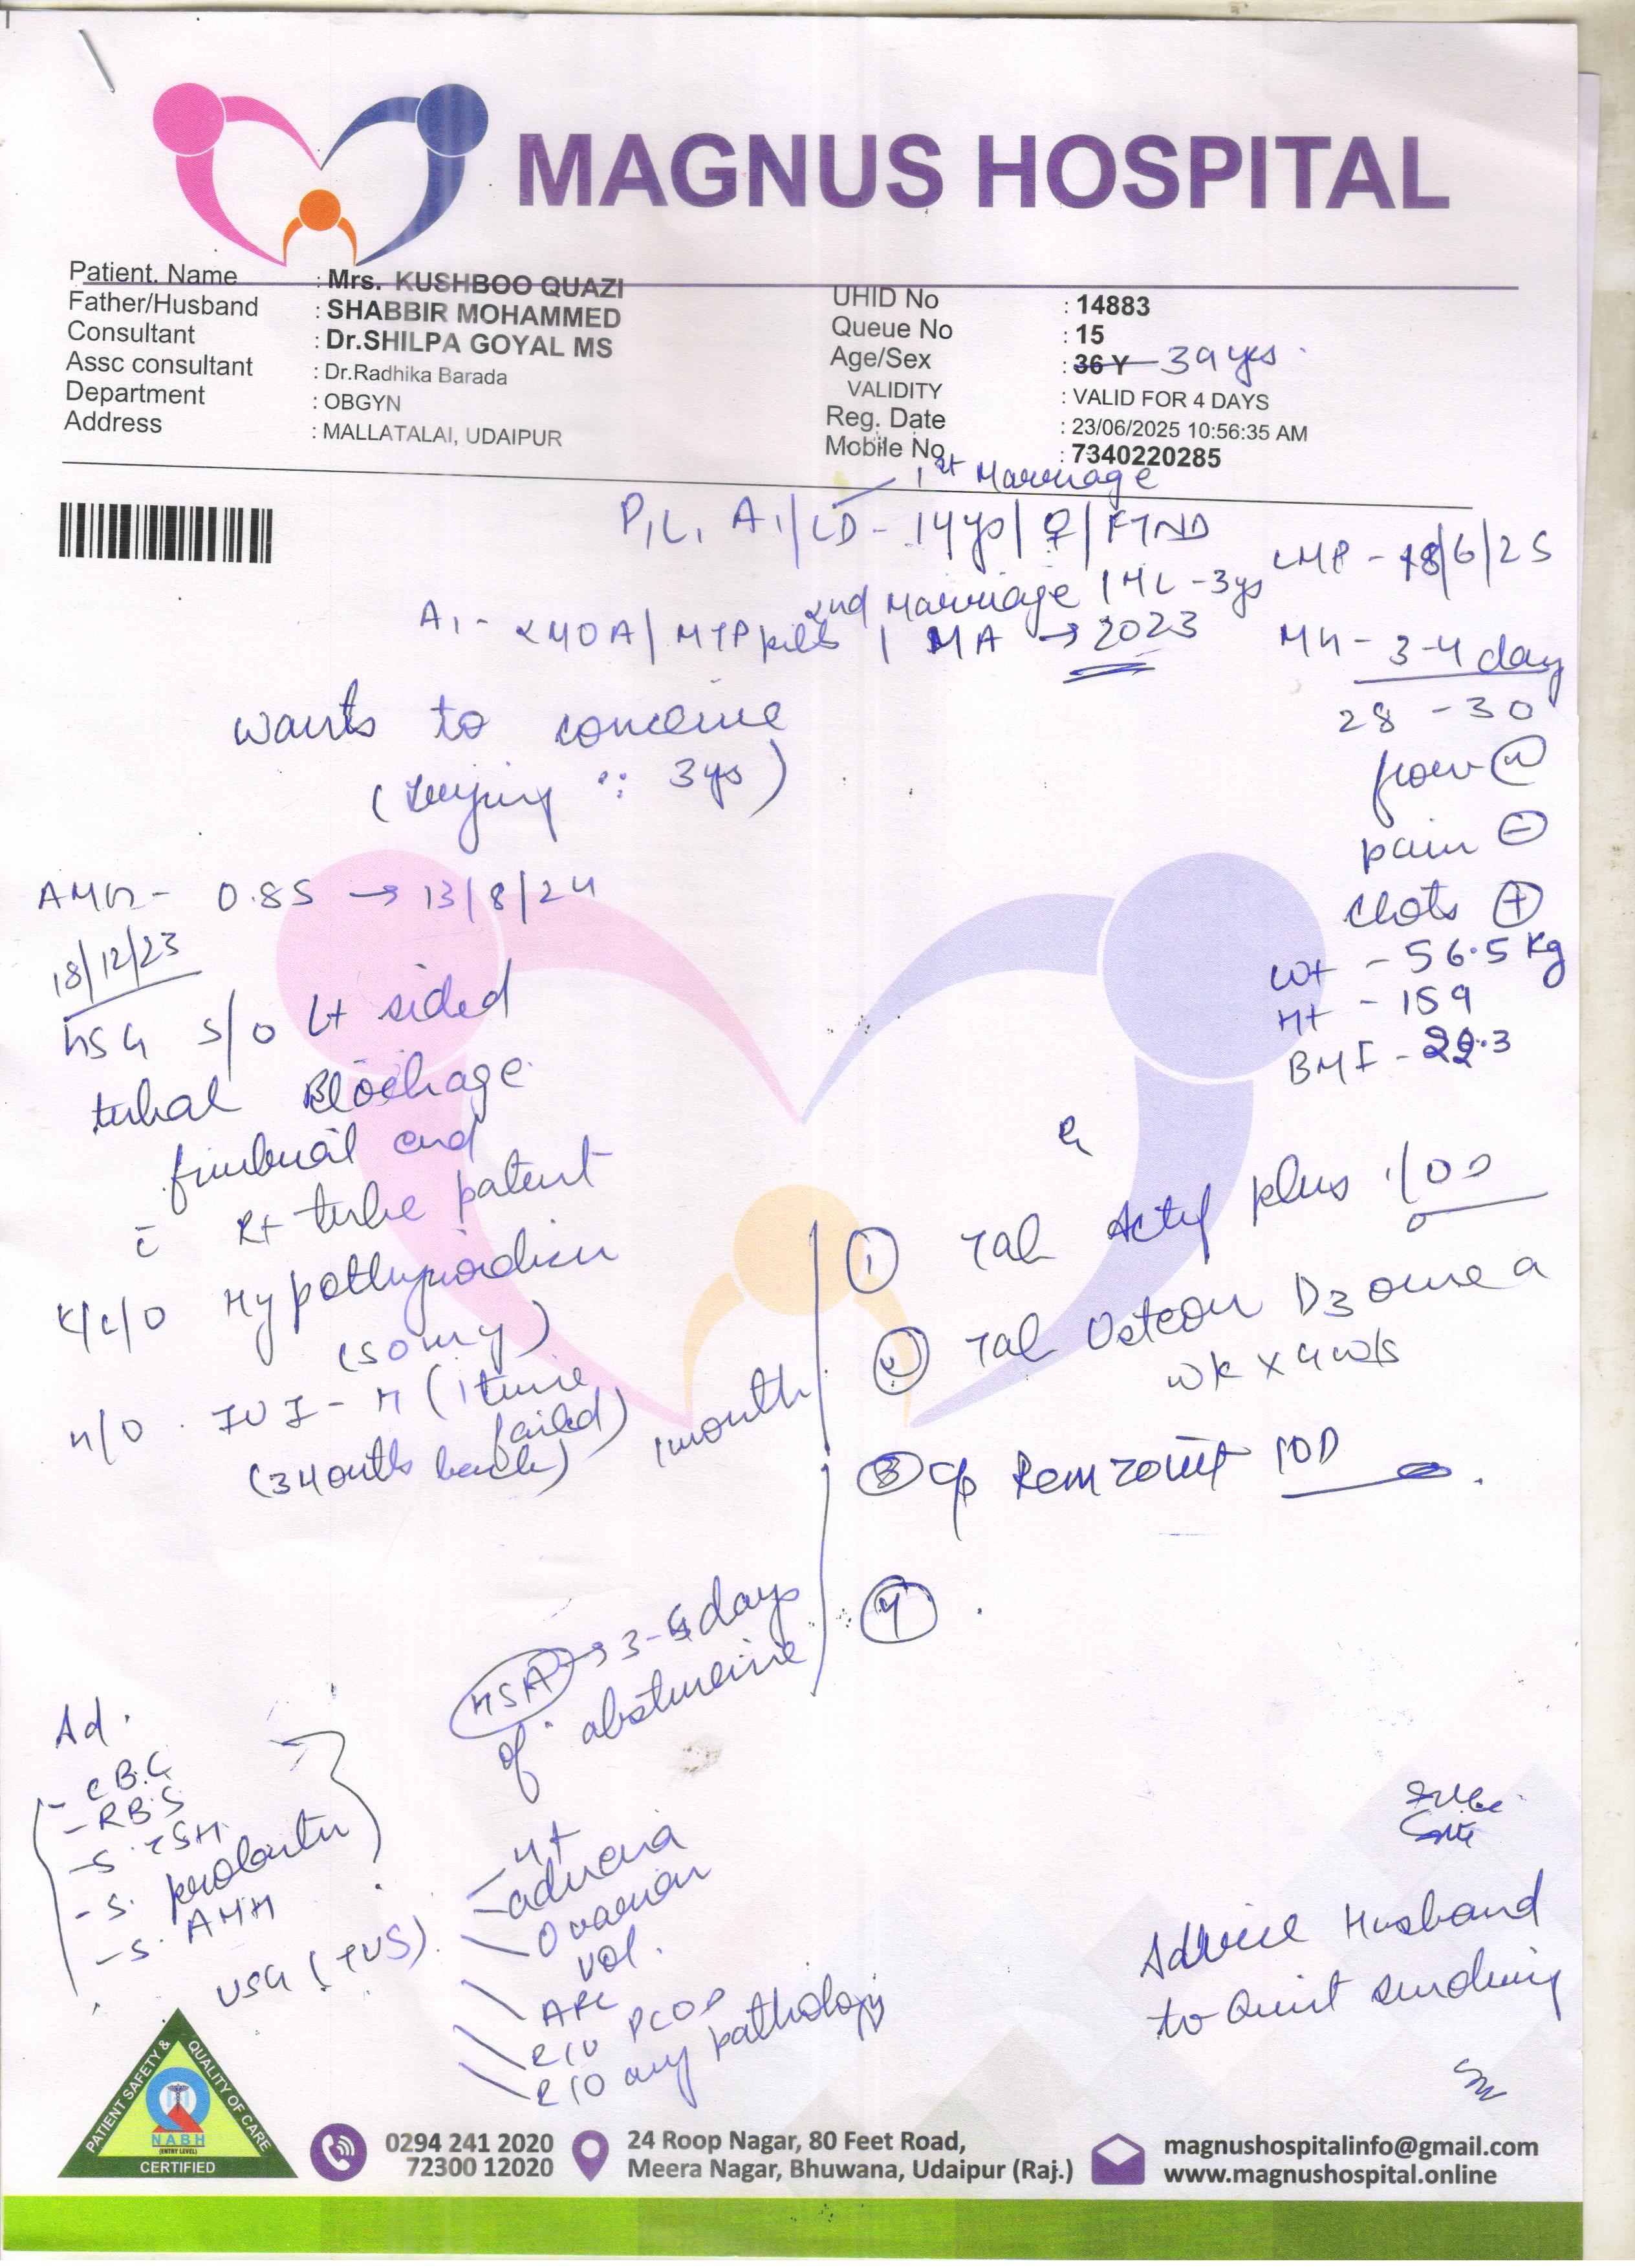 MAGNUS HOSPITAL
Patient. Name : Mrs. KUSHBOO QUAZI
Father/Husband : SHABBIR MOHAMMED
Consultant : Dr.SHILPA GOYAL MS
Assc consultant : Dr.Radhika Barada
Department : OBGYN
Address : MALLATALAI, UDAIPUR
UHID No : 14883
Queue No : 15
Age/Sex : 36 Y 39 yrs.
VALIDITY : VALID FOR 4 DAYS
Reg. Date : 23/06/2025 10:56:35 AM
Mobile No : 7340220285
1st Marriage
P1L1 A1/LD - 14 ys/♀/FTND
LMP - 18/6/25
2nd Marriage / ML - 3ys
A1 - 2MOA/MTP pills / MA → 2023
MH - 3-4 day
28 - 30
flow (N)
pain ⊖
clots ⊕
wt - 56.5 kg
Ht - 159
BMI - 22.3
wants to conceive
(trying 3ys)
AMH - 0.85 → 13/8/24
18/12/23
HSG S/O Lt sided
tubal Blockage
fimbrial end
c Rt tube patent
K/C/O Hypothyroidism
(50 mcg)
H/O IUI - H (1 time
failed)
(3 Months back)
1 month
① Tab Actif plus 1 OD
② Tab Osteon D3 once a
wk x 4 wks
③ cp 1OD
④ .
HSA → 3-4 days
of abstinence
Ad.
- CBC
- RBS
- S. TSH
- S. prolactin
- S. AMH
USG (TVS)
- ut
adnexa
- Ovarian
vol.
- AFC
- R/O PCOD
- R/O any pathology
Advice Husband
to Quit smoking
PATIENT SAFETY & QUALITY OF CARE
NABH
(ENTRY LEVEL)
CERTIFIED
0294 241 2020
72300 12020
24 Roop Nagar, 80 Feet Road,
Meera Nagar, Bhuwana, Udaipur (Raj.)
magnushospitalinfo@gmail.com
www.magnushospital.online